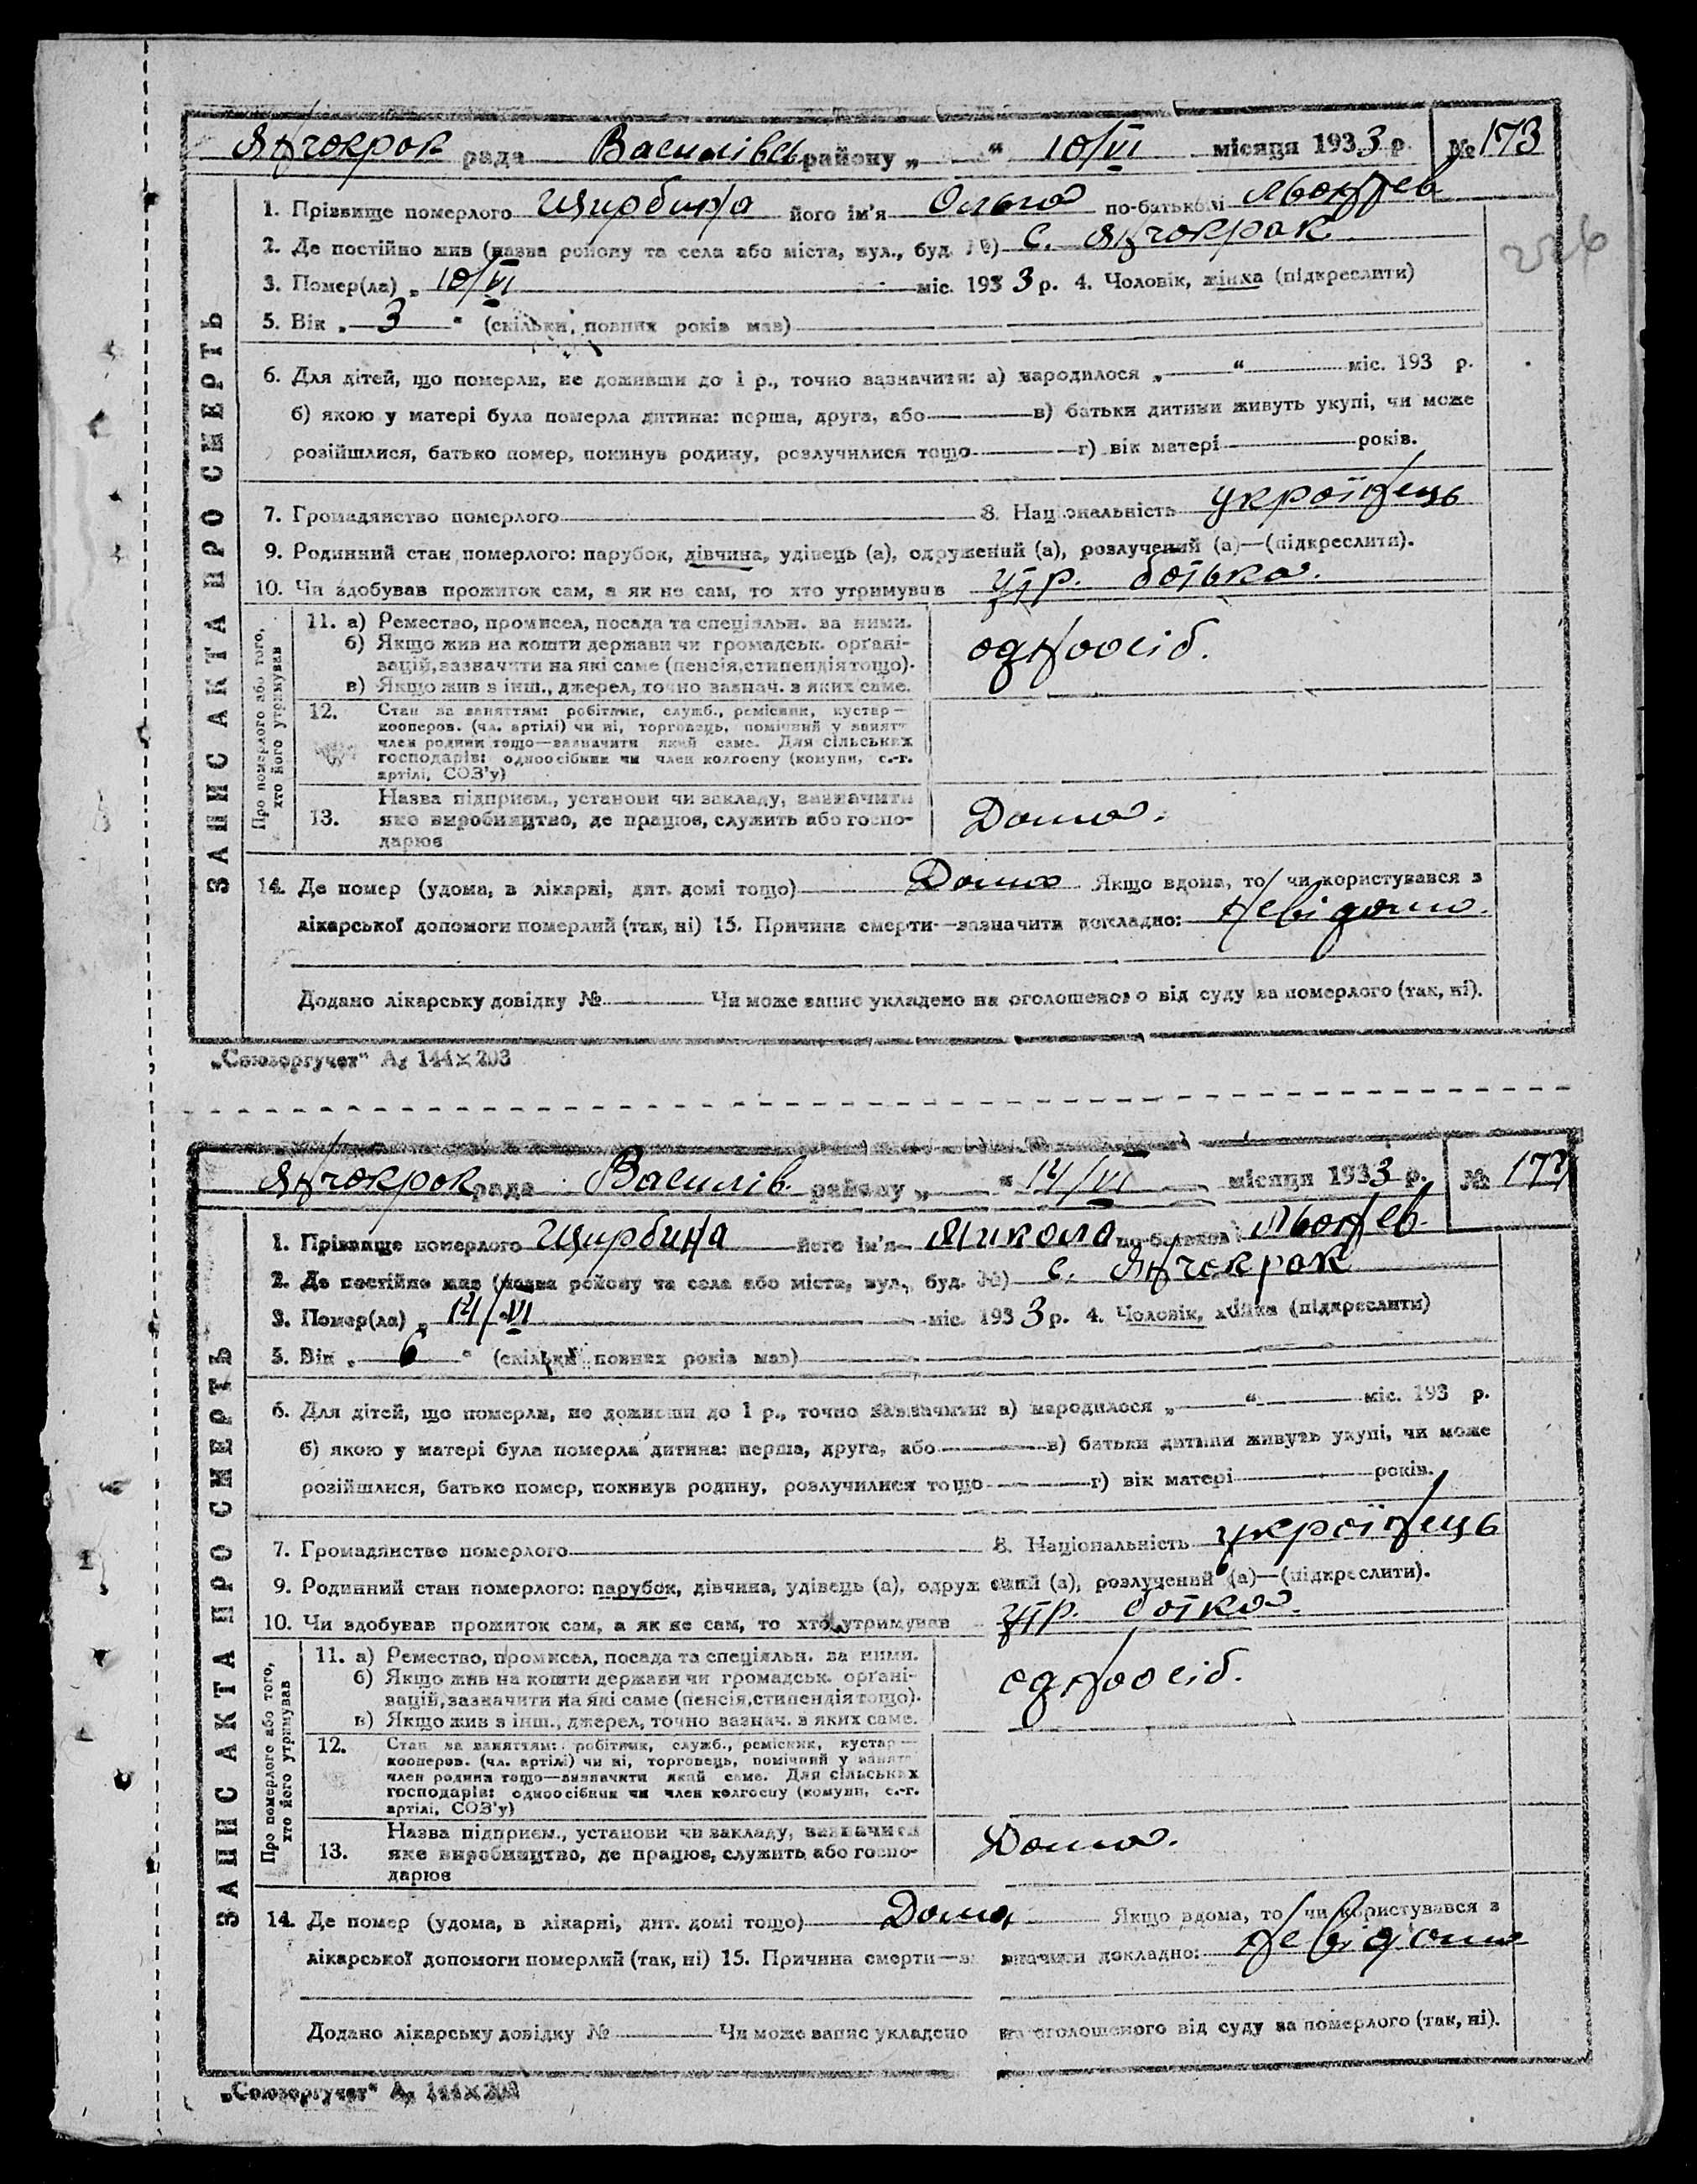 Янчокрак рада Василівськ району „ “ 10/VI місяця 1933 р. № 173
ЗАПИС АКТА ПРО СМЕРТЬ
1. Прізвище померлого Щирбина його ім'я Ольга по-батькові
2. Де постійно жив (назва району та села або міста, вул., буд. №) с. Янчокрак
226
3. Помер(ла) „ 10/VI міс. 1933 р. 4. Чоловік, жінка (підкреслити)
5. Вік „ 3 “ (скільки повних років мав)
6. Для дітей, що померли, не доживши до 1 р., точно зазначити: а) народилося „ “ міс. 193 р.
б) якою у матері була померла дитина: перша, друга, або в) батьки дитини живуть укупі, чи може
розійшлися, батько помер, покинув родину, розлучилися тощо г) вік матері років.
7. Громадянство померлого 8. Національність українець
9. Родинний стан померлого: парубок, дівчина, удівець (а), одружений (а), розлучений (а)—(підкреслити).
10. Чи здобував прожиток сам, а як не сам, то хто утримував утр. батька.
Про померлого або того, хто його утримував
11. а) Ремество, промисел, посада та спеціяльн. за ними.
б) Якщо жив на кошти держави чи громадськ. органі-
зацій, зазначити на які саме (пенсія, стипендія тощо).
в) Якщо жив з інш., джерел, точно зазнач. з яких саме.
одноосіб.
12. Стан за заняттям: робітник, служб., ремісник, кустар—
кооперов. (чл. артілі) чи ні, торговець, помічний у занятт
член родини тощо—зазначити який саме. Для сільських
господарів: одноосібник чи член колгоспу (комуни, с.-г.
артілі, СОЗ'у)
13. Назва підприєм., установи чи закладу, зазначити
яке виробництво, де працює, служить або госпо-
дарює
Дома.
14. Де помер (удома, в лікарні, дит. домі тощо) Дома Якщо вдома, то чи користувався з
лікарської допомоги померлий (так, ні) 15. Причина смерти—зазначити докладно: Невідомо.
Додано лікарську довідку № Чи може запис укладено на оголошеного від суду за померлого (так, ні).
„Союзоргучет“ А₅ 144×203
Янчокрак рада Василів. району „ “ 14/VI місяця 1933 р. № 174
ЗАПИС АКТА ПРО СМЕРТЬ
1. Прізвище померлого Щирбина його ім'я Микола по-батькові
2. Де постійно жив (назва району та села або міста, вул., буд. №) с. Янчокрак
3. Помер(ла) „ 14/VI міс. 1933 р. 4. Чоловік, жінка (підкреслити)
5. Вік „ 6 “ (скільки повних років мав)
6. Для дітей, що померли, не доживши до 1 р., точно зазначити: а) народилося „ “ міс. 193 р.
б) якою у матері була померла дитина: перша, друга, або в) батьки дитини живуть укупі, чи може
розійшлися, батько помер, покинув родину, розлучилися тощо г) вік матері років.
7. Громадянство померлого 8. Національність українець
9. Родинний стан померлого: парубок, дівчина, удівець (а), одружений (а), розлучений (а)—(підкреслити).
10. Чи здобував прожиток сам, а як не сам, то хто утримував утр. батка.
Про померлого або того, хто його утримував
11. а) Ремество, промисел, посада та спеціяльн. за ними.
б) Якщо жив на кошти держави чи громадськ. органі-
зацій, зазначити на які саме (пенсія, стипендія тощо).
в) Якщо жив з інш., джерел, точно зазнач. з яких саме.
одноосіб.
12. Стан за заняттям: робітник, служб., ремісник, кустар—
кооперов. (чл. артілі) чи ні, торговець, помічний у занятт
член родини тощо—зазначити який саме. Для сільських
господарів: одноосібник чи член колгоспу (комуни, с.-г.
артілі, СОЗ'у)
13. Назва підприєм., установи чи закладу, зазначити
яке виробництво, де працює, служить або госпо-
дарює
Дома.
14. Де помер (удома, в лікарні, дит. домі тощо) Дома Якщо вдома, то чи користувався з
лікарської допомоги померлий (так, ні) 15. Причина смерти—зазначити докладно: Невідомо
Додано лікарську довідку № Чи може запис укладено на оголошеного від суду за померлого (так, ні).
„Союзоргучет“ А₅ 144×203